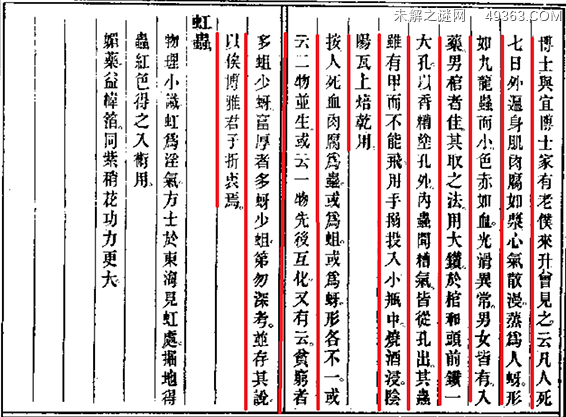 未解之謎网
49363.COM
博士與宜博士家有老僕來升曾見之云凡人死
七日外遍身肌肉腐如漿心氣散漫蒸爲人蚜形
如九龍蟲而小色赤如血光滑異常男女皆有入
藥男棺者佳其取之法用大鑽於棺和頭前鑽一
大孔以香糟塗孔外內蟲聞糟氣皆從孔出其蟲
雖有甲而不能飛用手搦投入小瓶中燒酒浸陰
陽瓦上焙乾用
按人死血肉腐爲蟲或爲蛆或爲蚜形各不一或
云二物並生或云一物先後互化又有云貧窮者
多蛆少蚜富厚者多蚜少蛆第勿深考並存其說
以俟博雅君子折衷焉
虹蟲
物理小識虹爲淫氣方士於東海見虹處掘地得
蟲紅色得之入術用
媚藥益幃箔同紫稍花功力更大